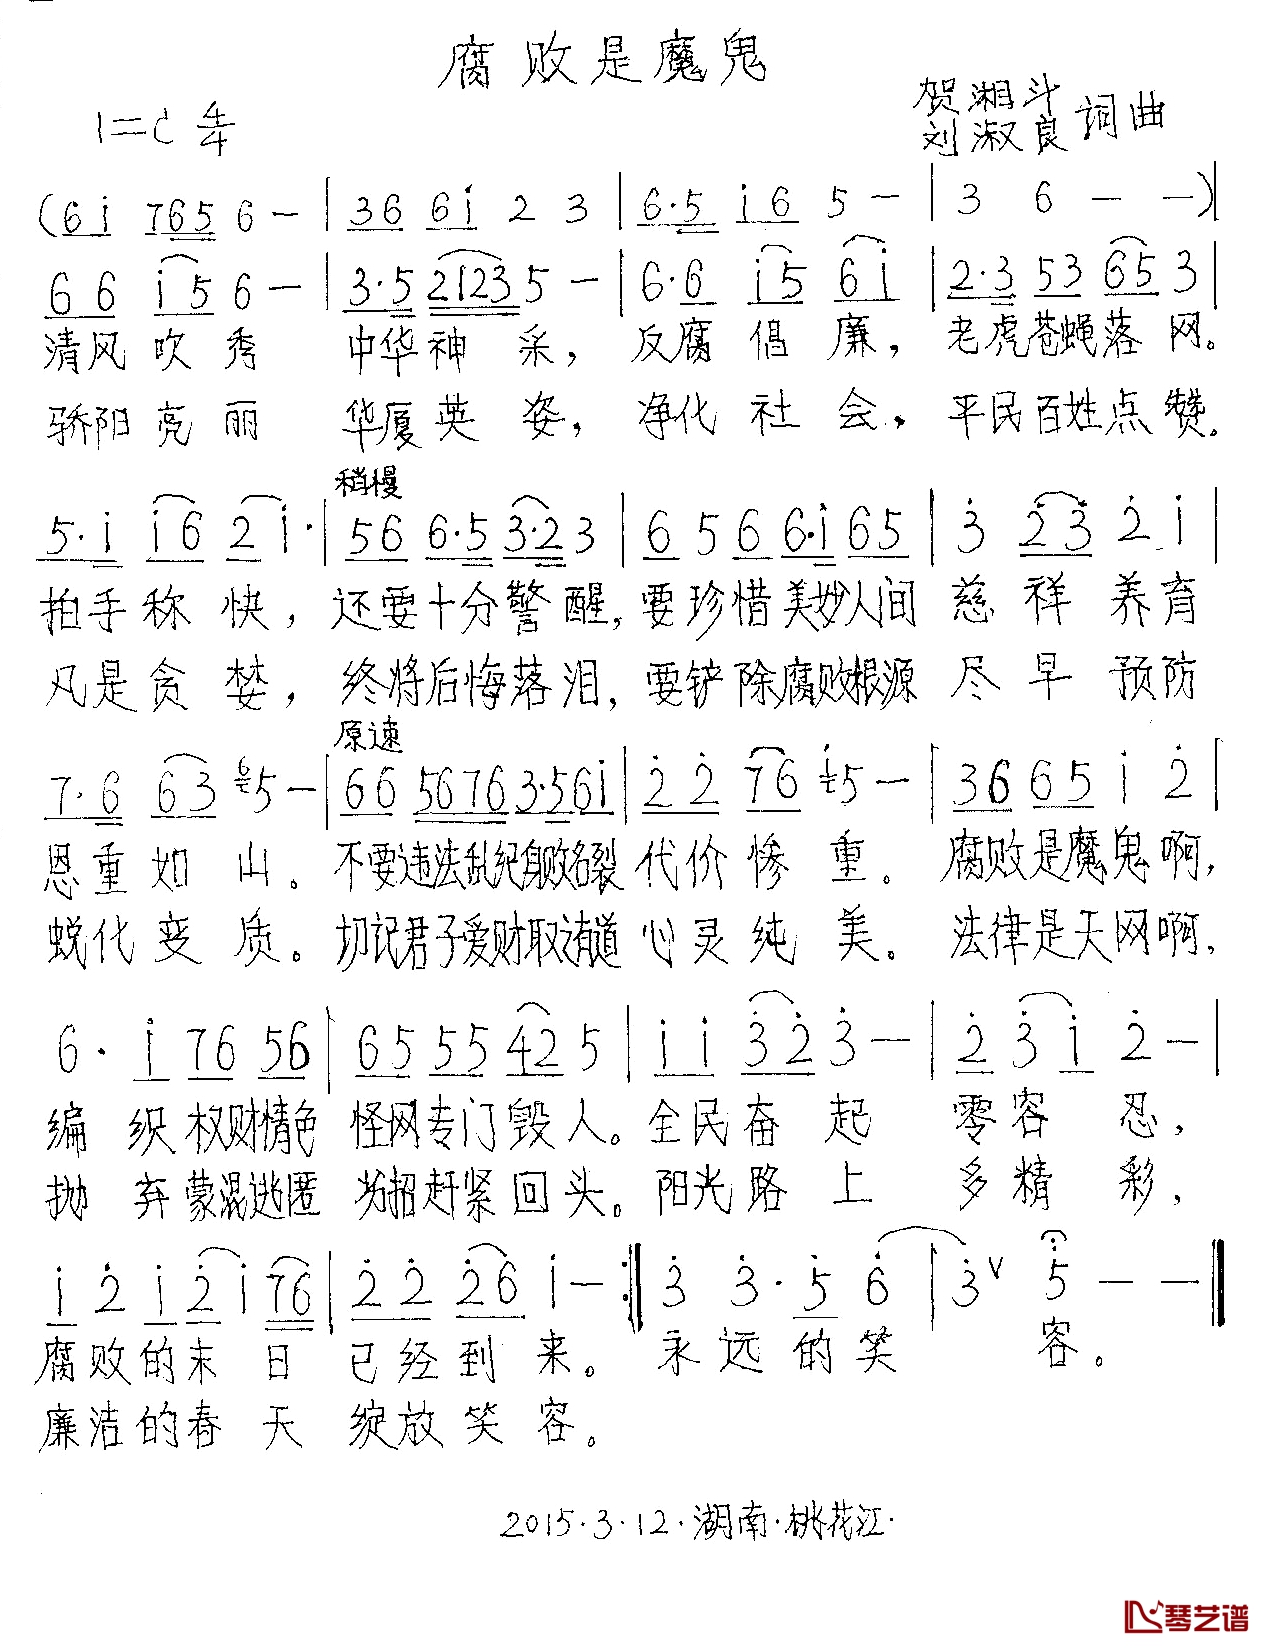 腐败是魔鬼
1=C 4/4
贺湘斗
刘淑良 词曲
(6i 7656- | 36 6i 2 3 | 6·5 i6 5- | 3 6 - -)|
66 i5 6- | 3·5 2123 5- | 6·6 i5 6i | 2·3 53 653 |
清风吹秀 中华神采，反腐倡廉，老虎苍蝇落网。
骄阳亮丽 华厦英姿，净化社会，平民百姓点赞。
稍慢
5·i i6 2i· | 56 6·5 3·2 3 | 6 5 6 6·i 65 | 3 23 2 i |
拍手称快，还要十分警醒，要珍惜美妙人间 慈祥养育
凡是贪婪，终将后悔落泪，要铲除腐败根源 尽早预防
原速
7·6 63 5- | 66 5676 3·56i | 22 76 5- | 36 65 i 2 |
恩重如山。不要违法乱纪身败名裂 代价惨重。腐败是魔鬼啊，
蜕化变质。切记君子爱财取之有道 心灵纯美。法律是天网啊，
6· i 76 56 | 65 55 42 5 | ii 32 3- | 2 3i 2- |
编织权财情色 怪网专门毁人。全民奋起 零容忍，
抛弃蒙混逃匿 为招赶紧回头。阳光路上 多精彩，
i 2 i2i 76 | 22 26 i- :| 3 3·5 6 | 3 ∨ 5 - - |
腐败的末日 已经到来。永远的笑 容。
廉洁的春天 绽放笑容。
2015·3·12·湖南·桃花江·
琴艺谱